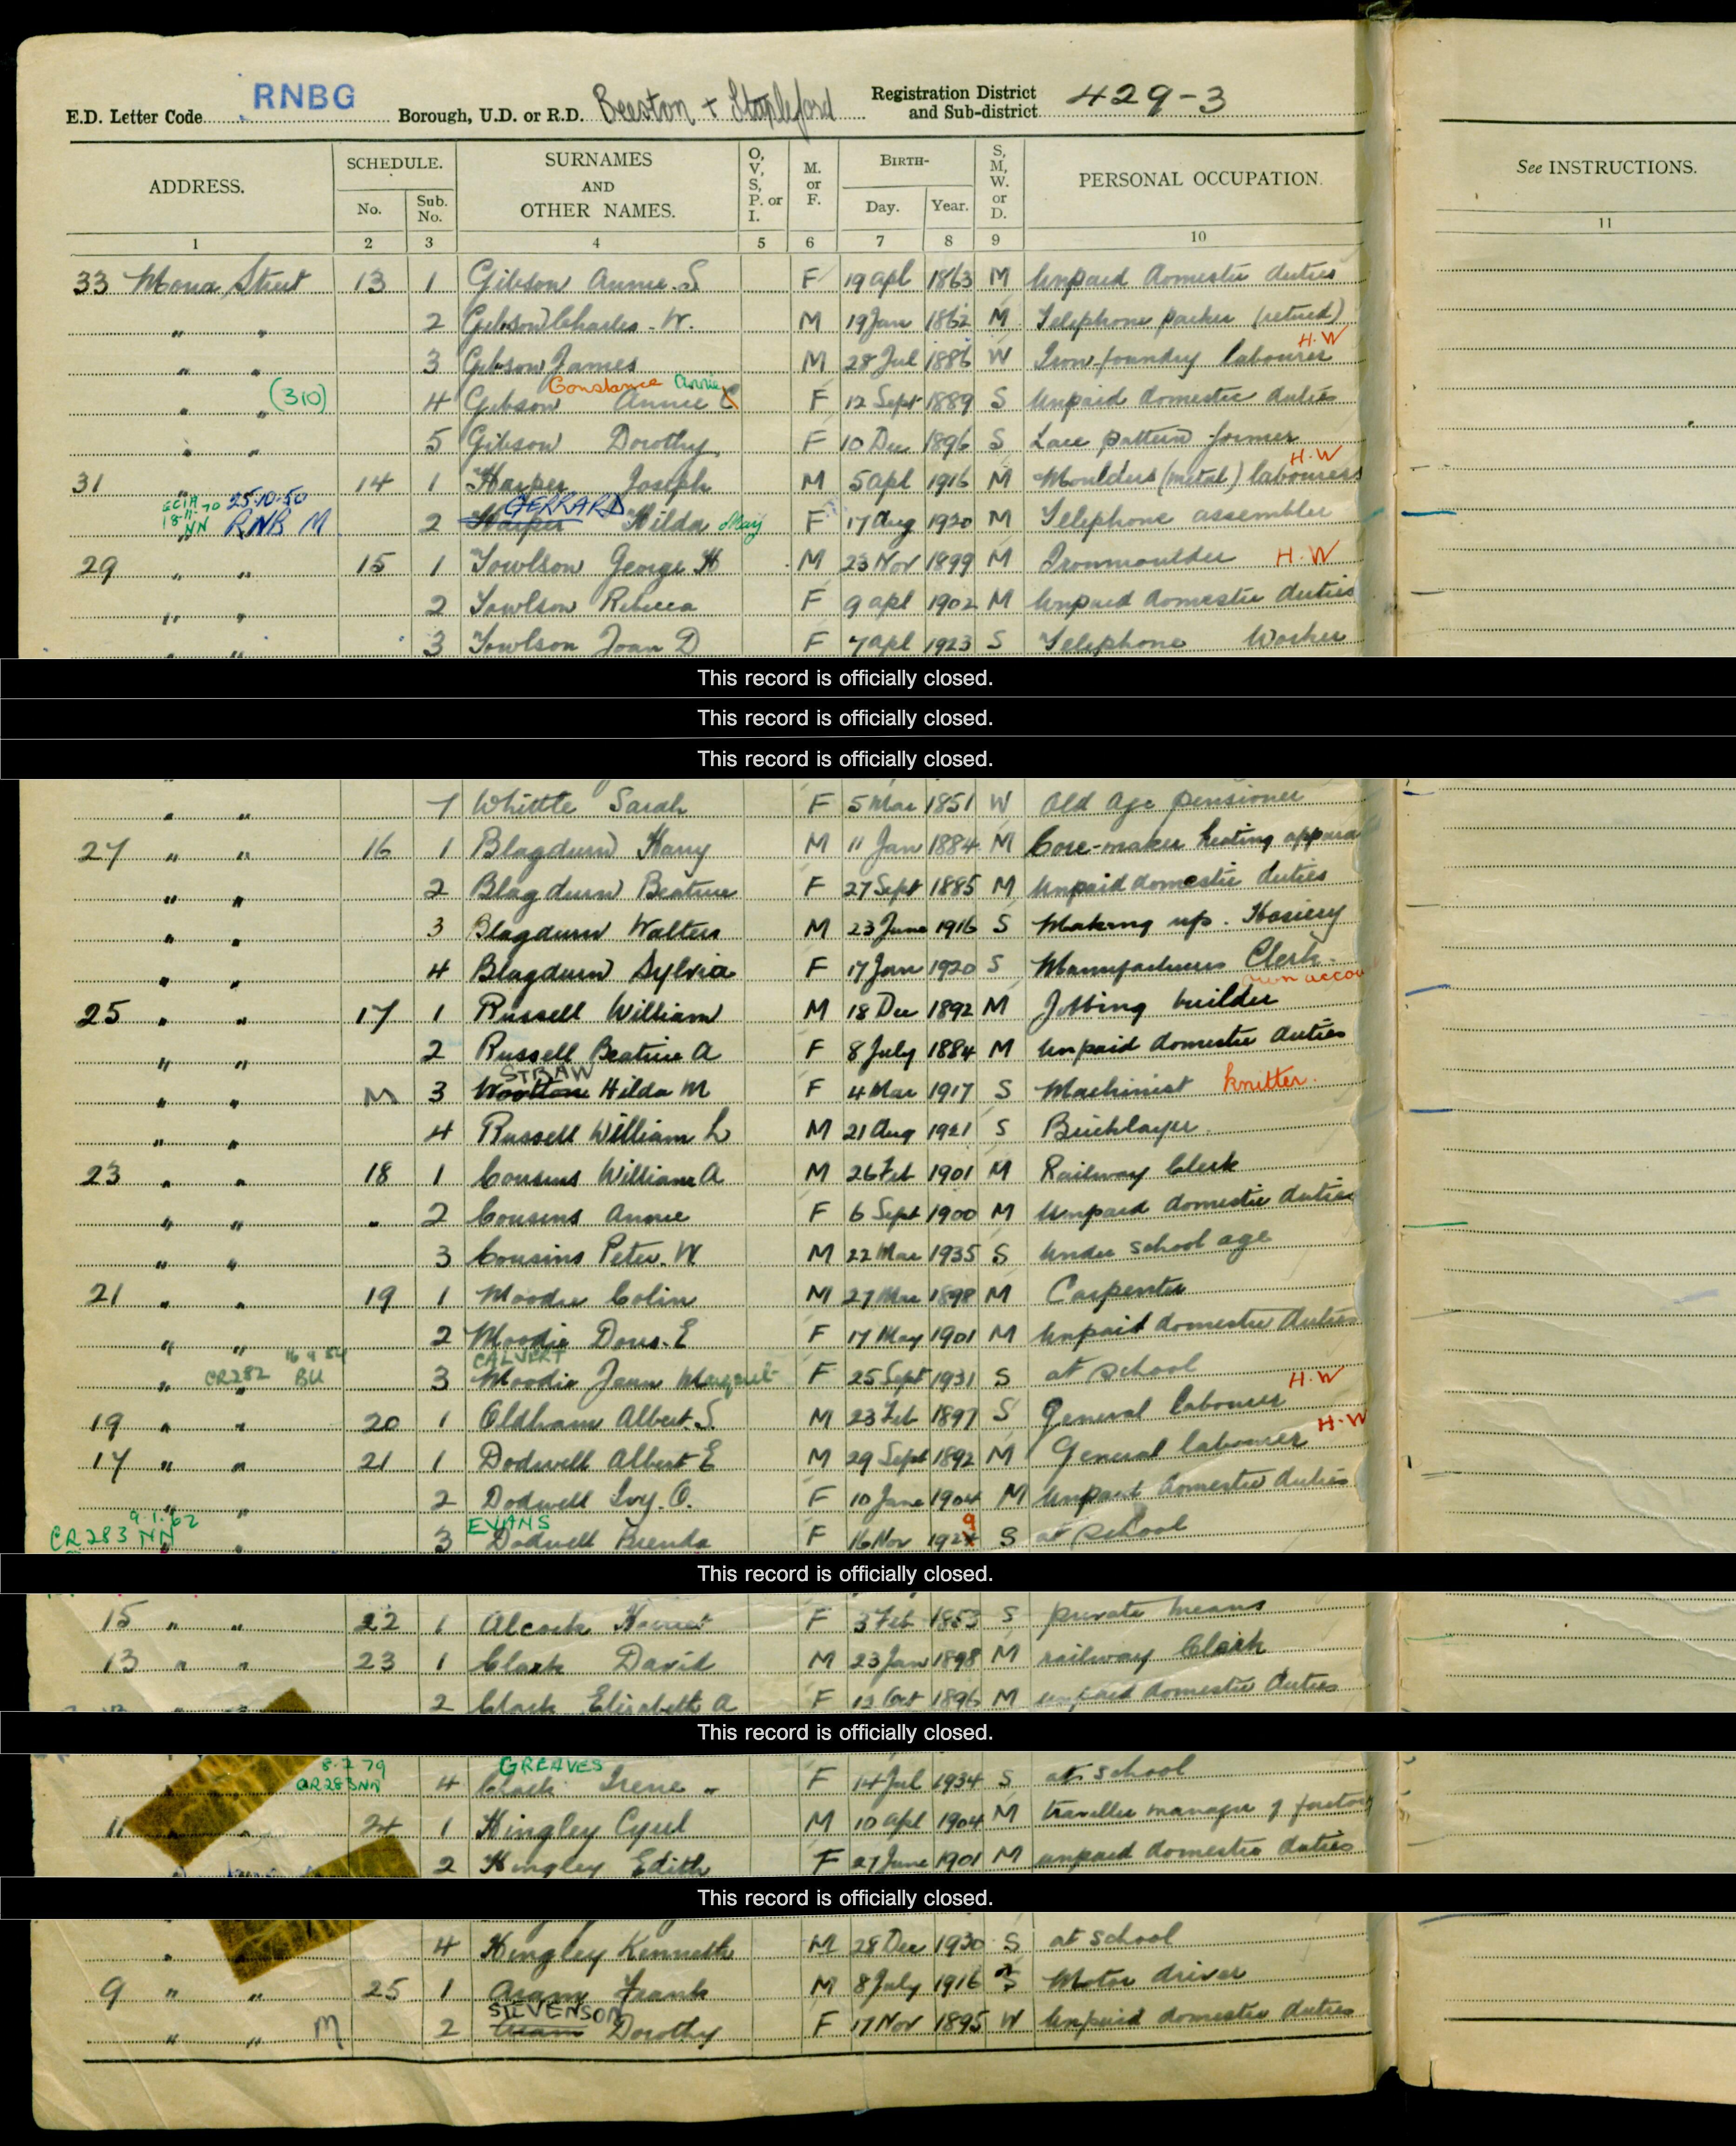 RNBG
E.D. Letter Code Borough, U.D. or R.D. Beeston + Stapleford Registration District and Sub-district 429-3
ADDRESS. SCHEDULE. No. Sub. No. SURNAMES AND OTHER NAMES. O, V, S, P. or I. M. or F. BIRTH- Day. Year. S, M, W. or D. PERSONAL OCCUPATION. See INSTRUCTIONS.
1 2 3 4 5 6 7 8 9 10 11
33 Mona Street 13 1 Gibson Annie. S F 19 Apl 1863 M Unpaid domestic duties
" " 2 Gibson Charles. W. M 19 Jan 1862 M Telephone packer (retired)
" " 3 Gibson James M 28 Jul 1886 W Iron-foundry labourer H.W
Constance Annie
" " (310) 4 Gibson Annie C F 12 Sept 1889 S Unpaid domestic duties
" " 5 Gibson Dorothy F 10 Dec 1896 S Lace pattern former
31 " 14 1 Harper Joseph M 5 Apl 1916 M Moulders (metal) labourers H.W
18-11-70 NN 25.10.50 RNB M GERRARD
" 2 Harper Hilda May F 17 Aug 1920 M Telephone assembler
29 " " 15 1 Towlson George H M 23 Nov 1899 M Ironmoulder H.W
" " 2 Towlson Rebecca F 9 Apl 1902 M Unpaid domestic duties
" " 3 Towlson Joan D F 7 Apl 1923 S Telephone Worker
This record is officially closed.
This record is officially closed.
This record is officially closed.
" " 7 Whittle Sarah F 5 Mar 1851 W Old Age pensioner
27 " " 16 1 Blagdurn Harry M 11 Jan 1884 M Core-maker heating appara
" " 2 Blagdurn Beatrice F 27 Sept 1885 M Unpaid domestic duties
" " 3 Blagdurn Walter M 23 June 1916 S Making up. Hosiery
" " 4 Blagdurn Sylvia F 17 Jan 1920 S Manufacturers Clerk.
own accou
25 " " 17 1 Russell William M 18 Dec 1892 M Jobbing builder
" " 2 Russell Beatrice A F 8 July 1884 M Unpaid domestic duties
STRAW
" " M 3 Wootton Hilda M F 4 Mar 1917 S Machinist knitter.
" " 4 Russell William L M 21 Aug 1921 S Bricklayer
23 " " 18 1 Cousins William A M 26 Feb 1901 M Railway Clerk
" " " 2 Cousins Annie F 6 Sept 1900 M Unpaid domestic duties
" " 3 Cousins Peter. W M 22 Mar 1935 S Under school age
21 " " 19 1 Moodie Colin M 27 Mar 1898 M Carpenter
" " 2 Moodie Doris. E F 17 May 1901 M Unpaid domestic duties
CALVERT
" CR282 BU 3 Moodie Jean Margaret F 25 Sept 1931 S at school
19 " " 20 1 Oldham Albert. S. M 23 Feb 1897 S General labourer H.W
17 " " 21 1 Dodwell Albert E M 29 Sept 1892 M General labourer H.W
" " 2 Dodwell Ivy. O. F 10 June 1904 M Unpaid domestic duties
9.1.62 EVANS 9
CR283 NN " 3 Dodwell Brenda F 16 Nov 192 S at school
This record is officially closed.
15 " " 22 1 Alcock Harriet F 3 Feb 1853 S private means
13 " " 23 1 Clark David M 23 Jan 1898 M railway Clerk
" 2 Clark Elizabeth A F 12 Oct 1896 M unpaid domestic duties
This record is officially closed.
8.2 79 GREAVES
CR283NN 4 Clark Irene " F 14 Jul 1934 S at school
11 " " 24 1 Hingley Cyril M 10 Apl 1904 M traveller manager of factory
" 2 Hingley Edith F 27 June 1901 M unpaid domestic duties
This record is officially closed.
" 4 Hingley Kenneth M 28 Dec 1930 S at school
9 " " 25 1 Aram Frank M 8 July 1916 S Motor driver
STEVENSON
" " M 2 Aram Dorothy F 17 Nov 1895 W Unpaid domestic duties